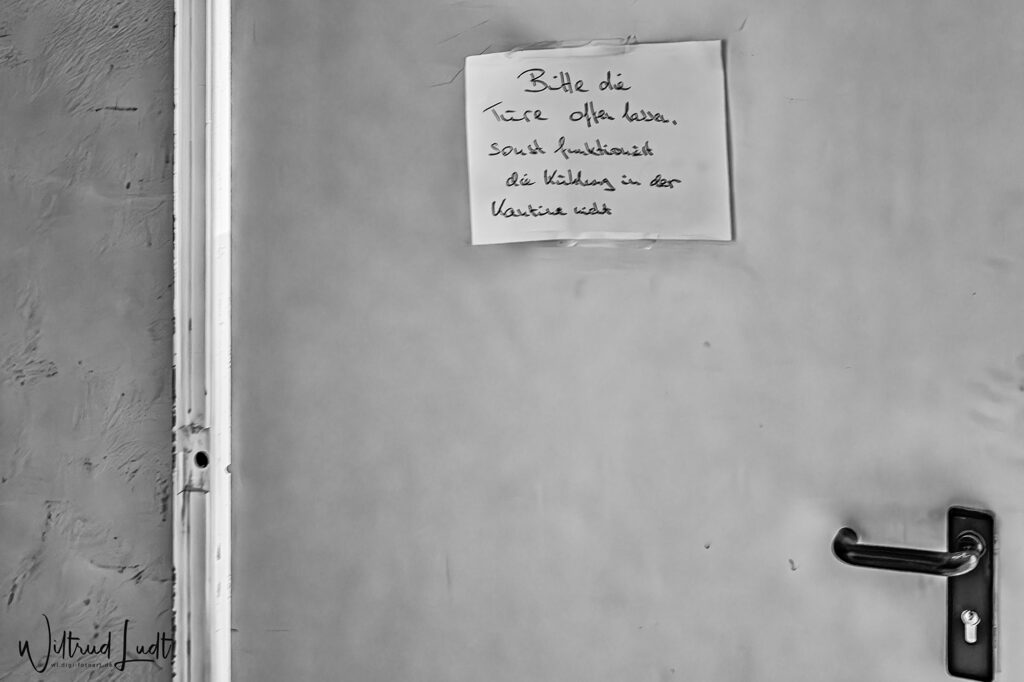 Bitte die
Türe offen lassen,
sonst funktioniert
die Kühlung in der
Kantine nicht
Wiltrud Ludt
wl.digi-fotoart.de